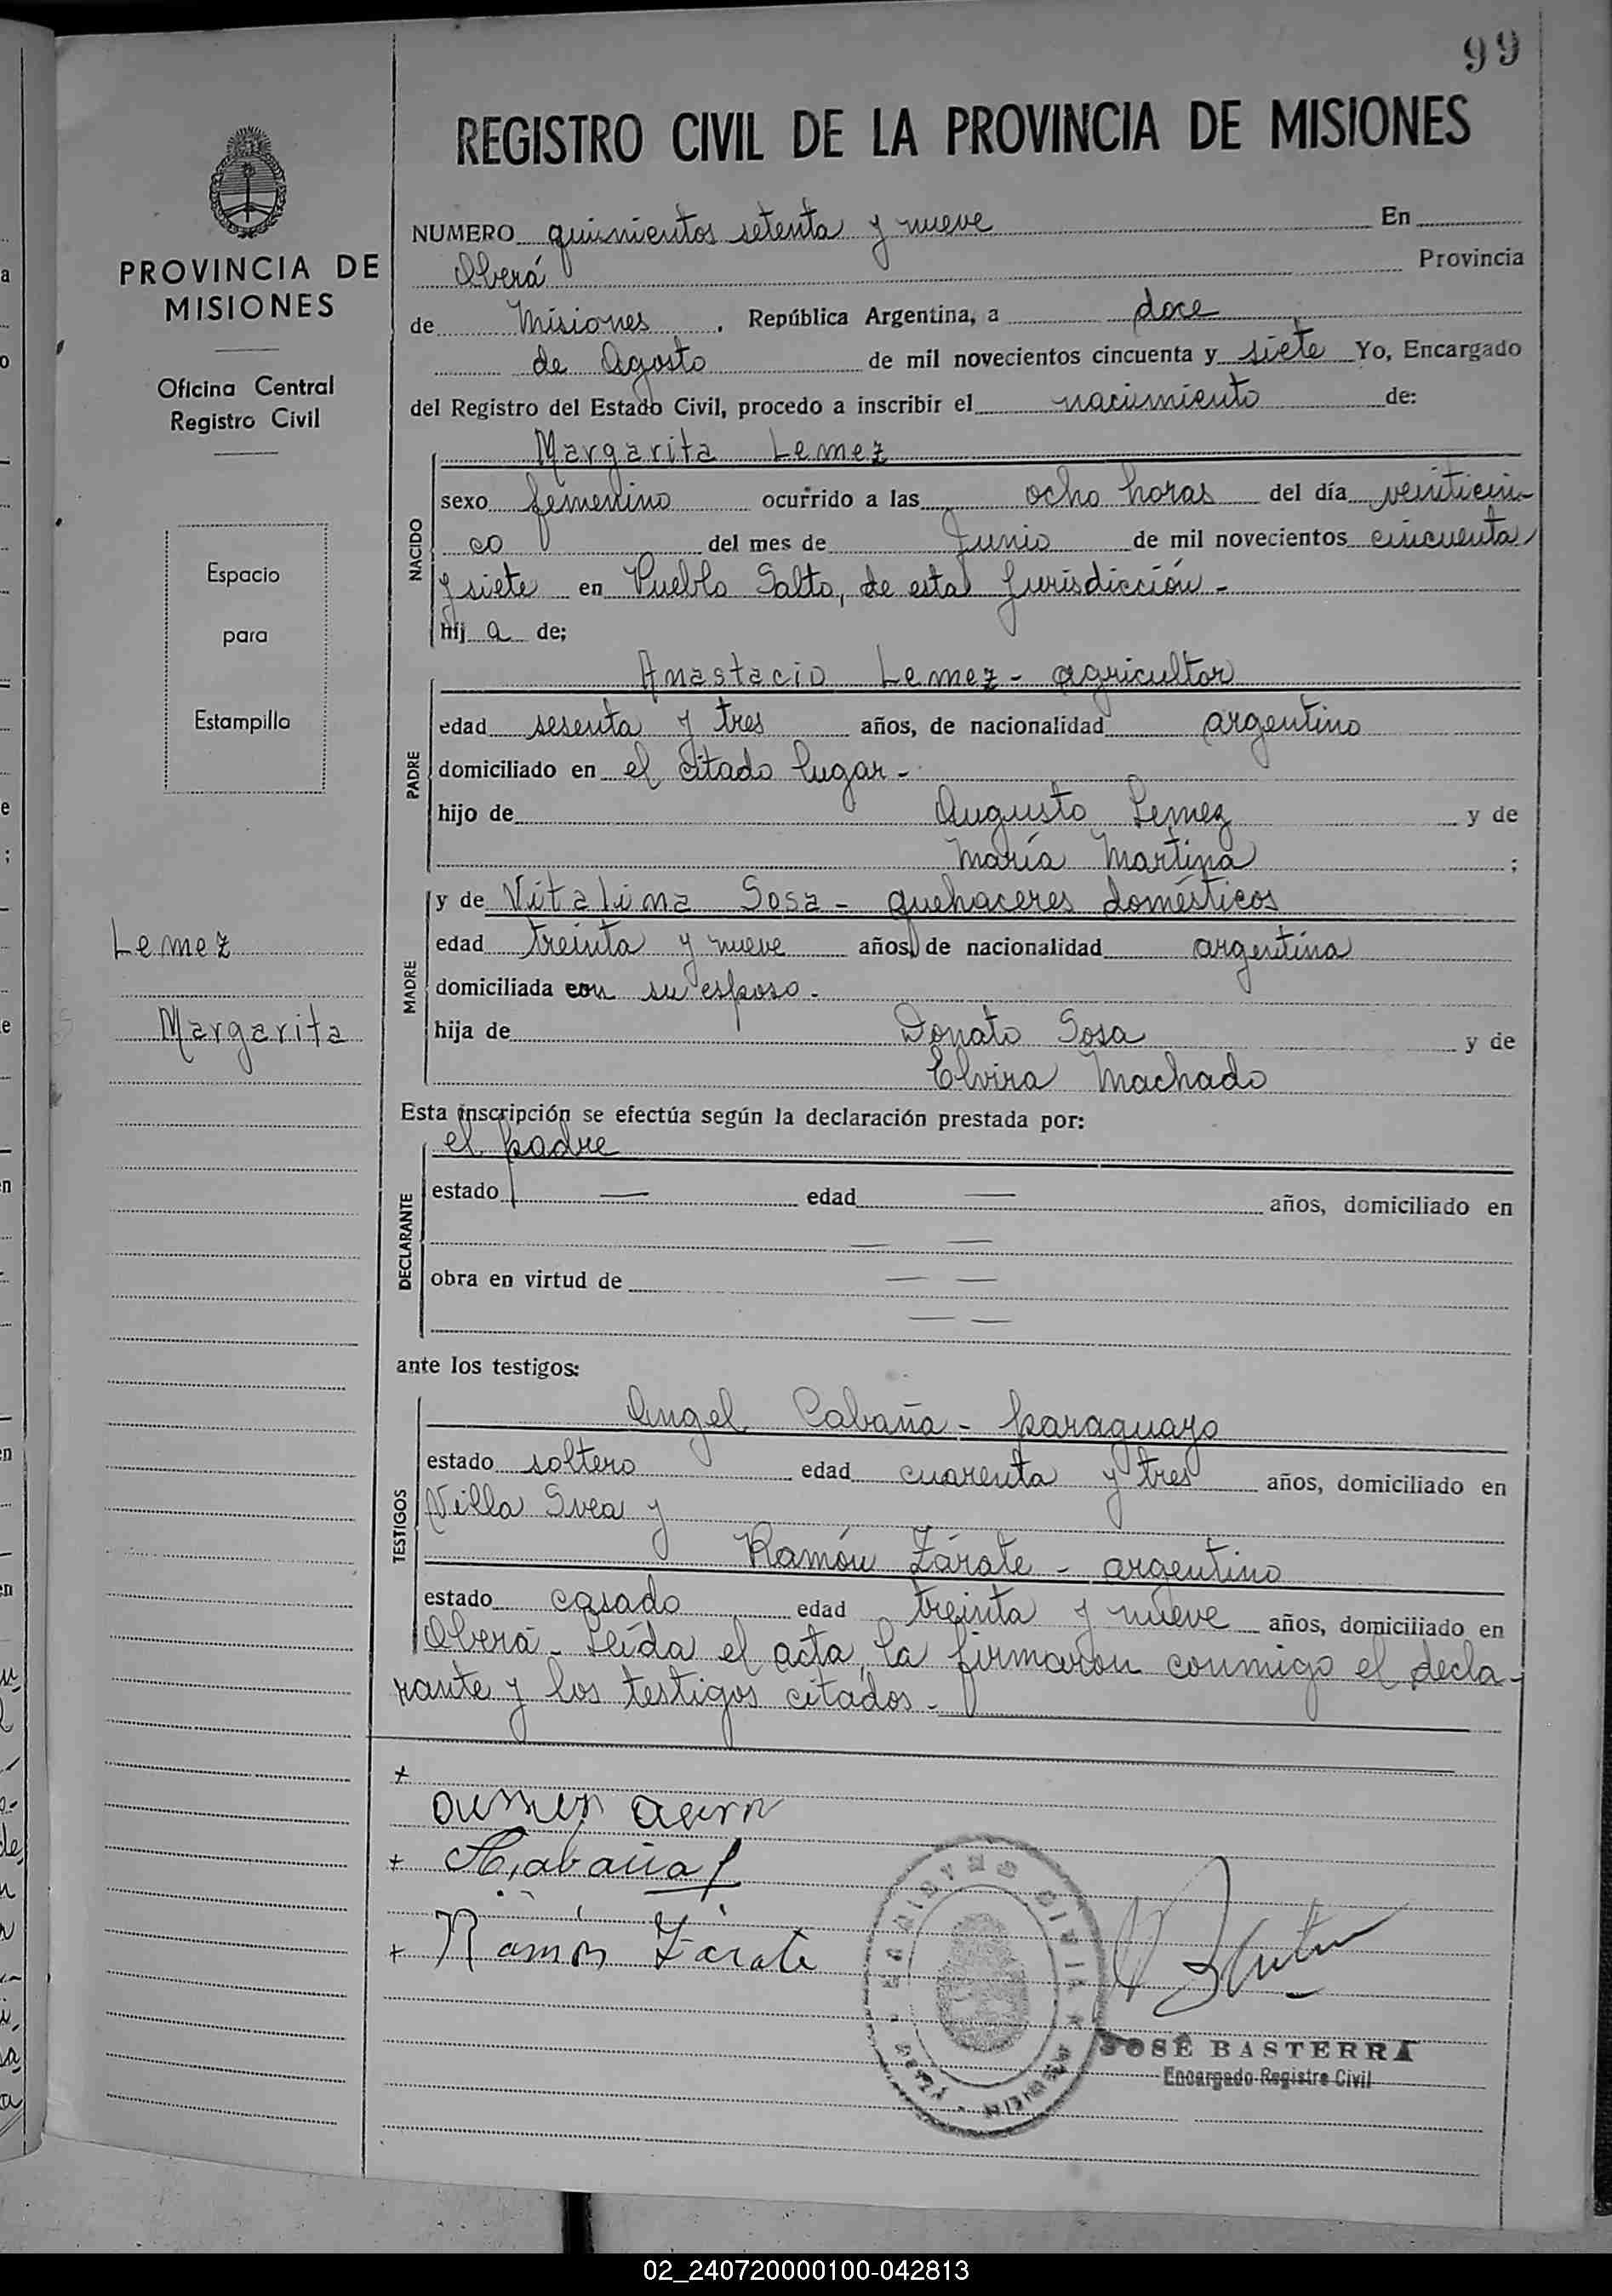 99
REGISTRO CIVIL DE LA PROVINCIA DE MISIONES
PROVINCIA DE
MISIONES
Oficina Central
Registro Civil
Espacio
para
Estampilla
Lemez
Margarita
NUMERO quinientos setenta y nueve En
Oberá Provincia
de Misiones . República Argentina, a doce
de Agosto de mil novecientos cincuenta y siete Yo, Encargado
del Registro del Estado Civil, procedo a inscribir el nacimiento de:
Margarita Lemez
NACIDO
sexo femenino ocurrido a las ocho horas del día veinticin-
co del mes de Junio de mil novecientos cincuenta
y siete en Pueblo Salto, de esta Jurisdicción -
hij a de;
Anastacio Lemez - agricultor
PADRE
edad sesenta y tres años, de nacionalidad argentino
domiciliado en el citado lugar -
hijo de Augusto Lemez y de
María Martina ;
y de Vitalina Sosa - quehaceres domésticos
MADRE
edad treinta y nueve años, de nacionalidad argentina
domiciliada con su esposo -
hija de Donato Sosa y de
Elvira Machado
Esta inscripción se efectúa según la declaración prestada por:
el padre
DECLARANTE
estado — edad — años, domiciliado en
— —
obra en virtud de — —
— —
ante los testigos:
Angel Cabaña - paraguayo
TESTIGOS
estado soltero edad cuarenta y tres años, domiciliado en
Villa Svea y
Ramón Zárate - argentino
estado casado edad treinta y nueve años, domiciliado en
Oberá - Leída el acta, la firmaron conmigo el decla-
rante y los testigos citados -
+
+ A Cabaña
+ Ramón Zárate
JOSÉ BASTERRA
Encargado Registro Civil
02_240720000100-042813